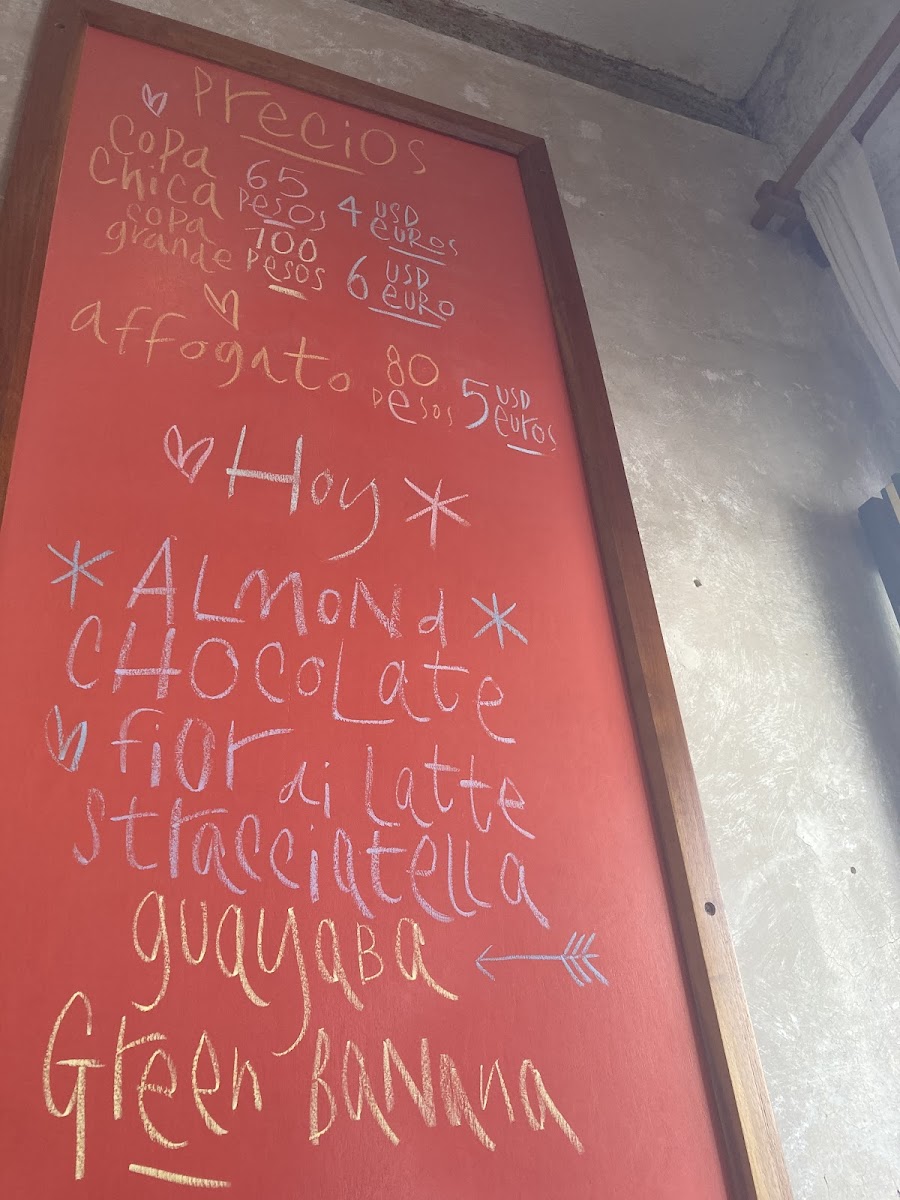 Precios
Copa Chica 65 Pesos 4 USD euros
copa grande 100 Pesos 6 USD euro
affogato 80 Pesos 5 USD euros
Hoy
ALMONd
CHOCOLate
fior di Latte
Stracciatella
guayaBa
Green BaNaNa